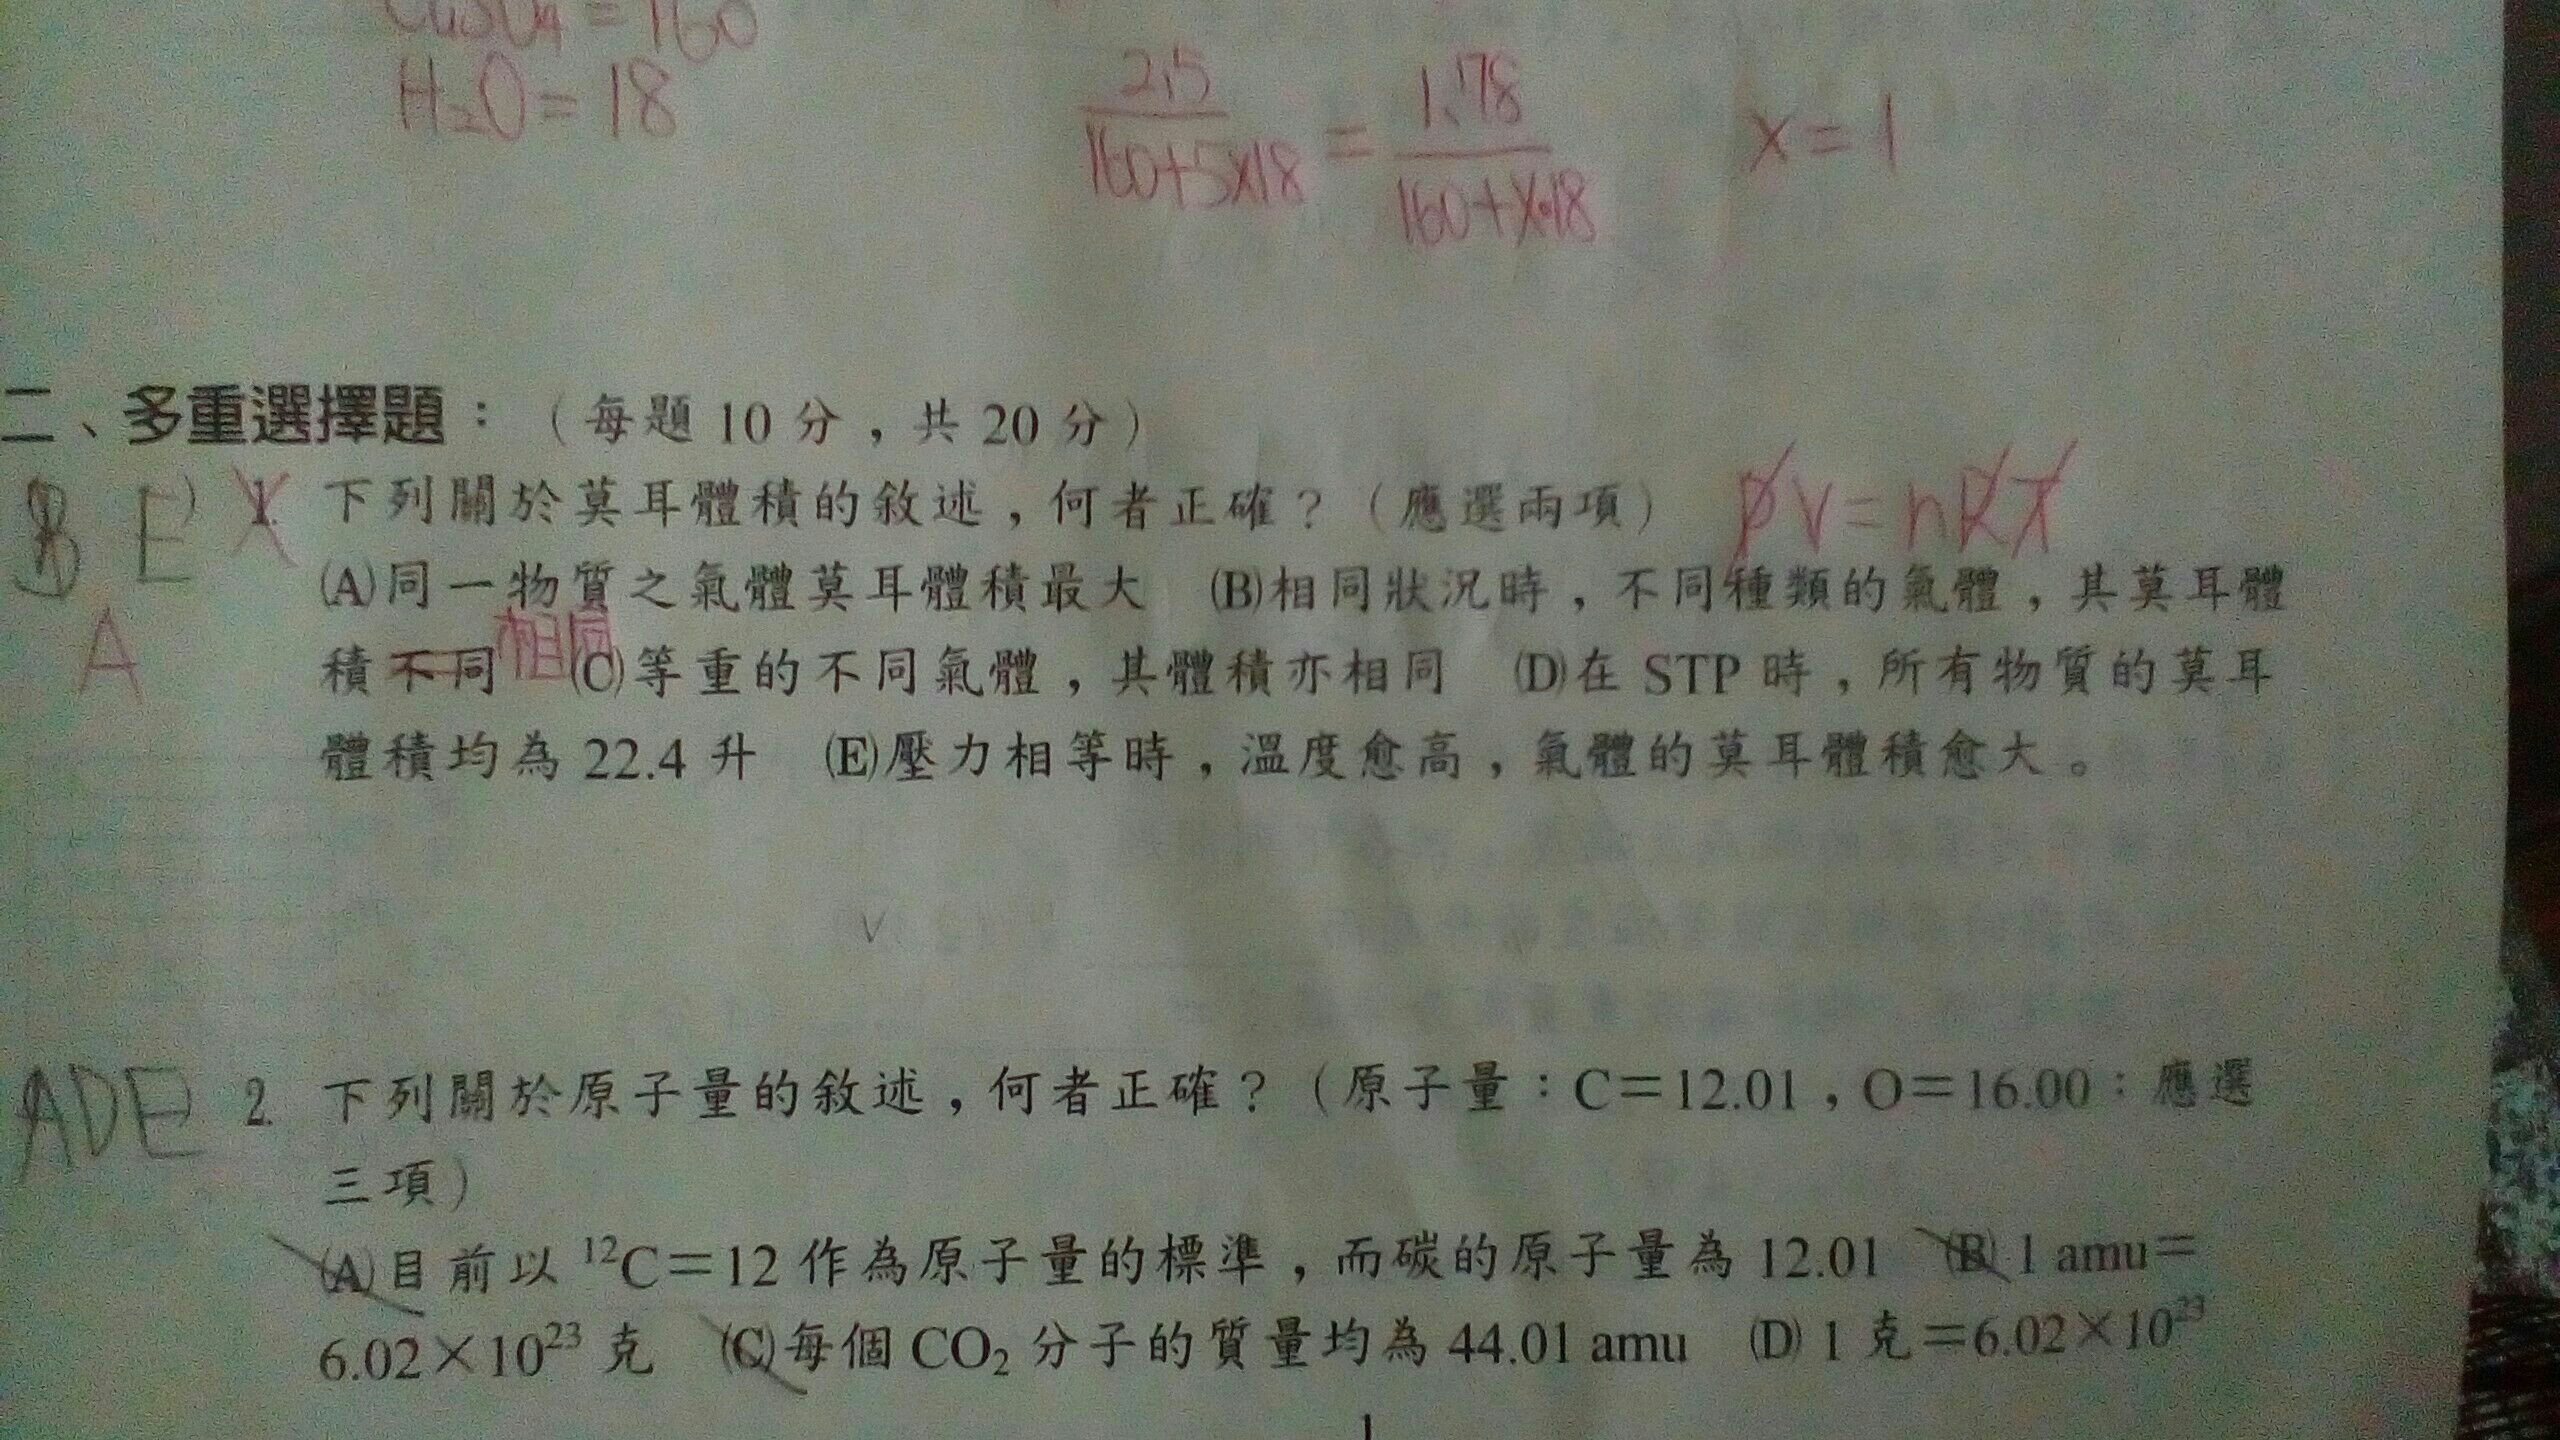 CuSO4 = 160
H2O = 18
2.5 / 160+5×18 = 1.78 / 160+X•18   x = 1
二、多重選擇題：（每題 10 分，共 20 分）
E 1. 下列關於莫耳體積的敘述，何者正確？（應選兩項） PV=nRT
(A)同一物質之氣體莫耳體積最大 (B)相同狀況時，不同種類的氣體，其莫耳體
A 積不同 相同 (C)等重的不同氣體，其體積亦相同 (D)在 STP 時，所有物質的莫耳
體積均為 22.4 升 (E)壓力相等時，溫度愈高，氣體的莫耳體積愈大。
ADE 2. 下列關於原子量的敘述，何者正確？（原子量：C＝12.01，O＝16.00：應選
三項）
(A)目前以 ¹²C＝12 作為原子量的標準，而碳的原子量為 12.01 (B) 1 amu＝
6.02×10²³ 克 (C)每個 CO₂ 分子的質量均為 44.01 amu (D) 1 克＝6.02×10²³
1